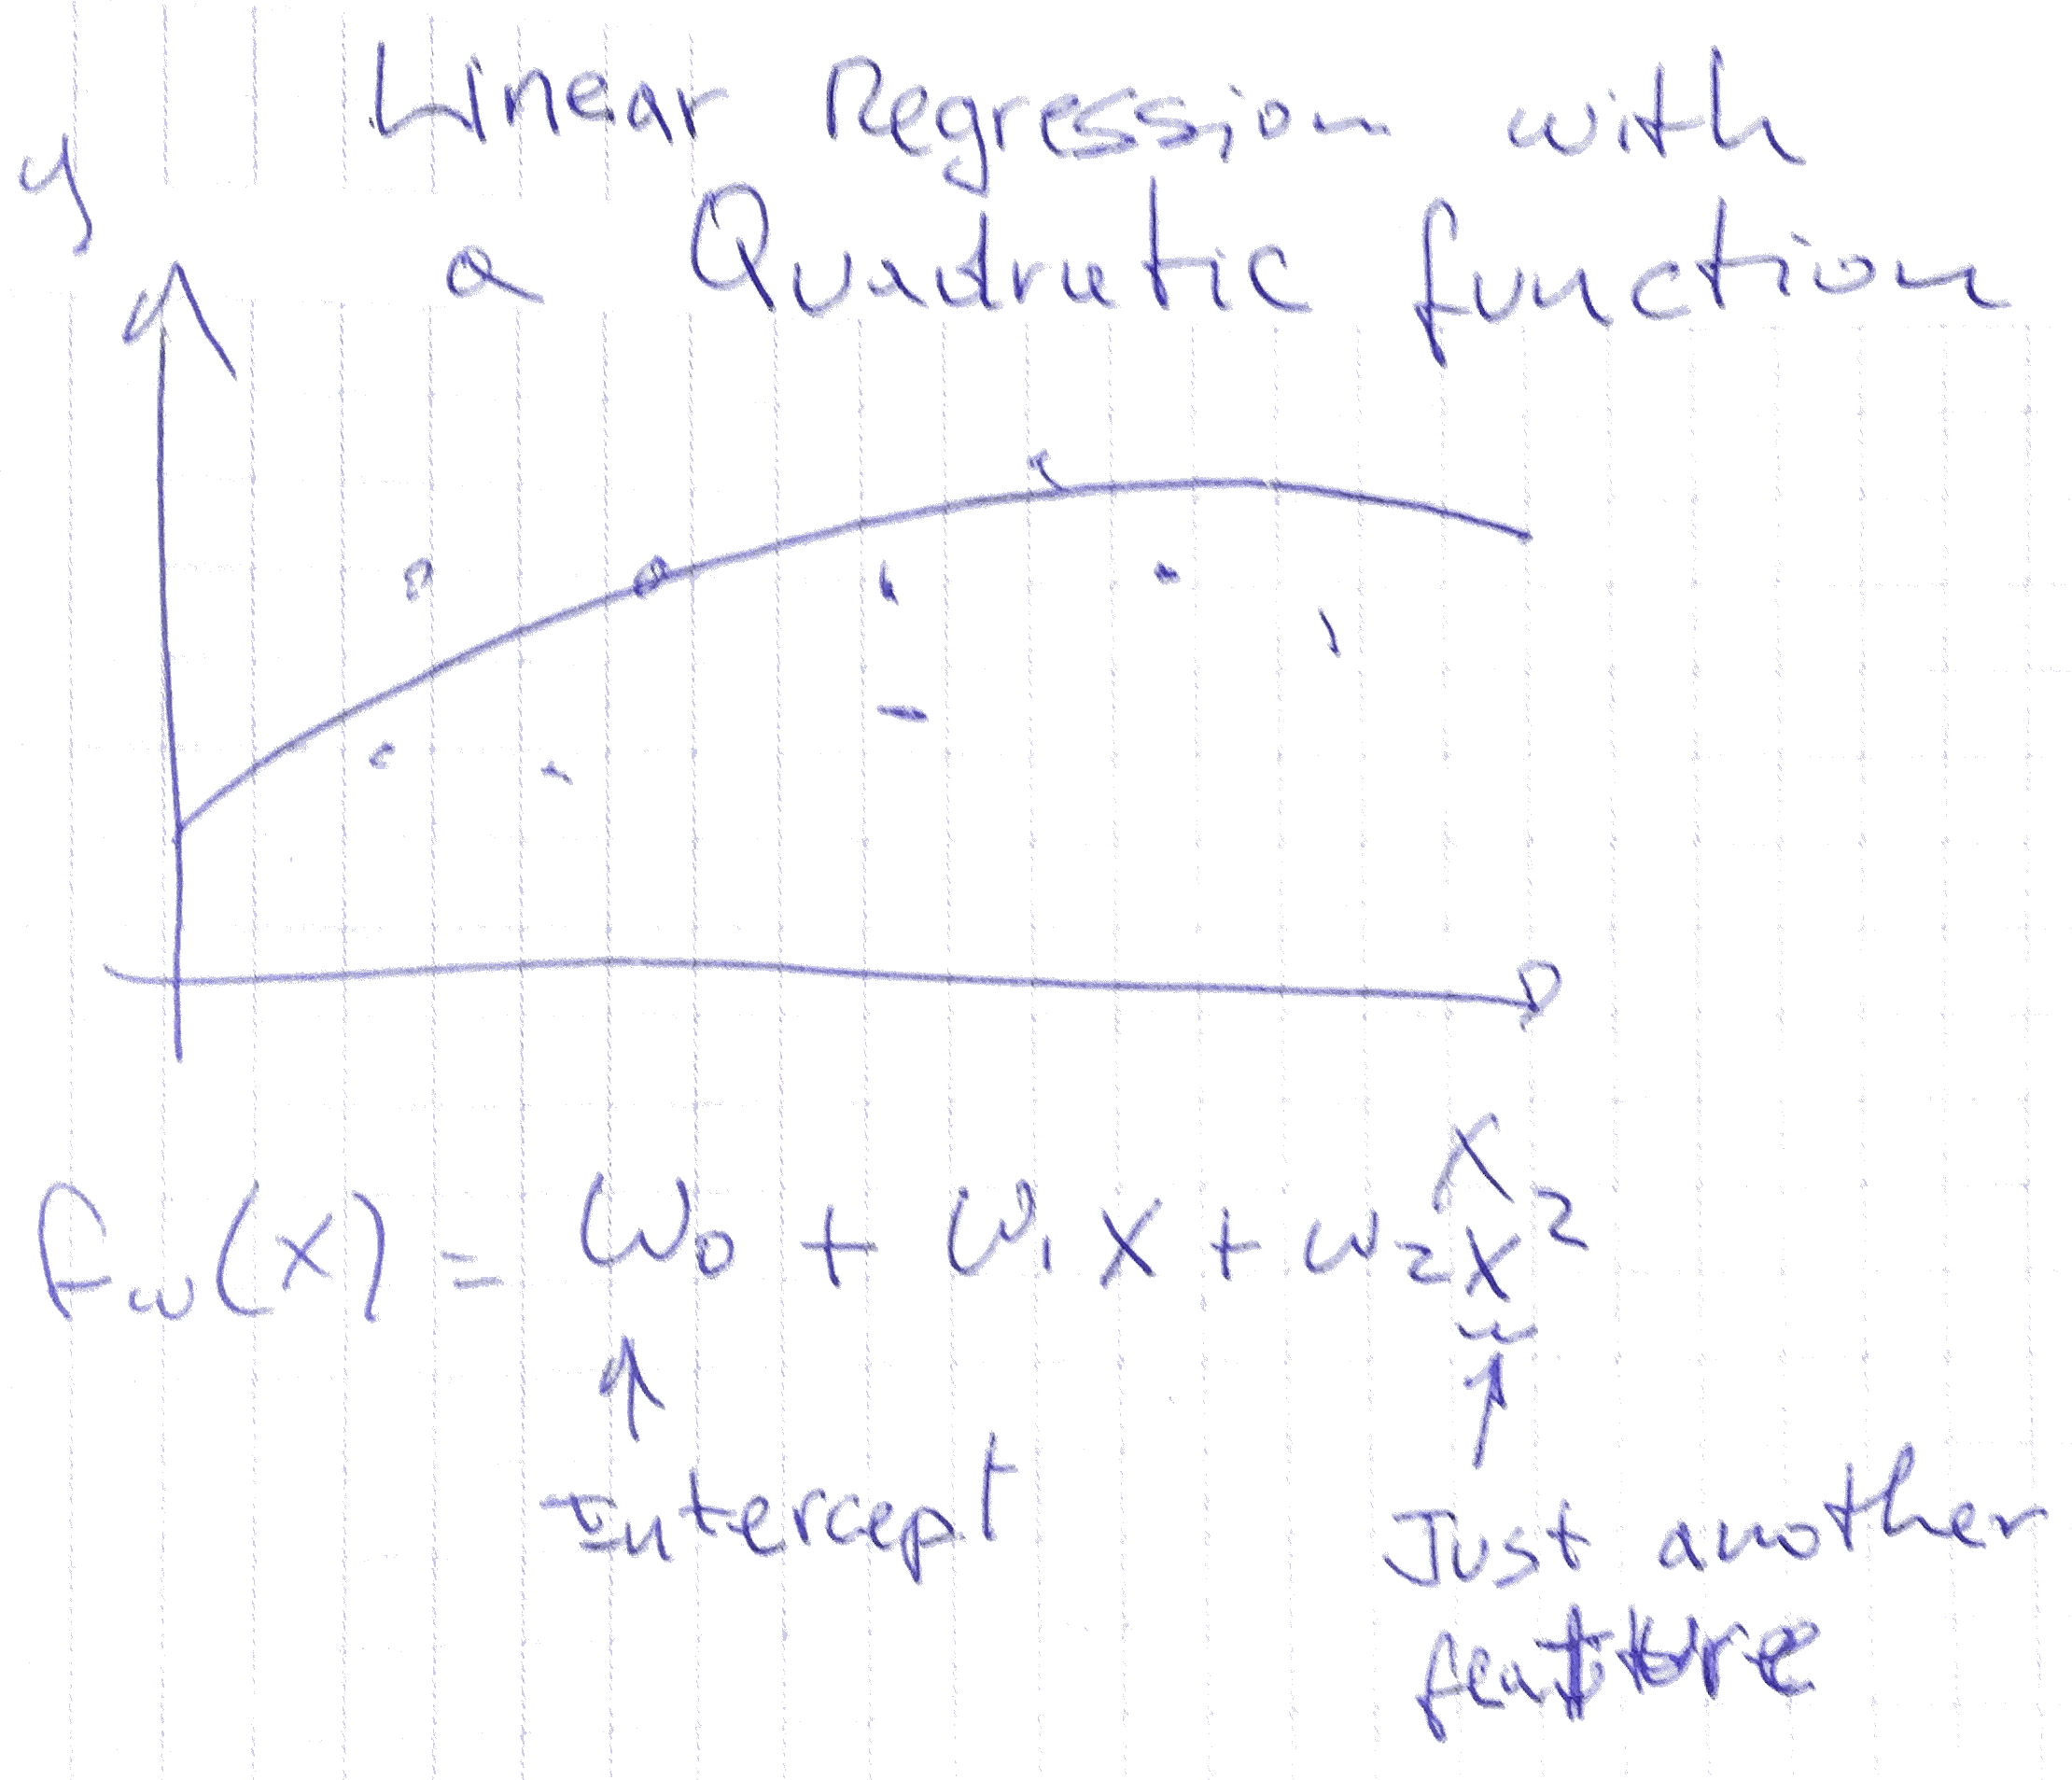 Linear Regression with
y
a Quadratic function
x
fw(x) = w0 + w1 x + w2 x²
Intercept
Just another
feature